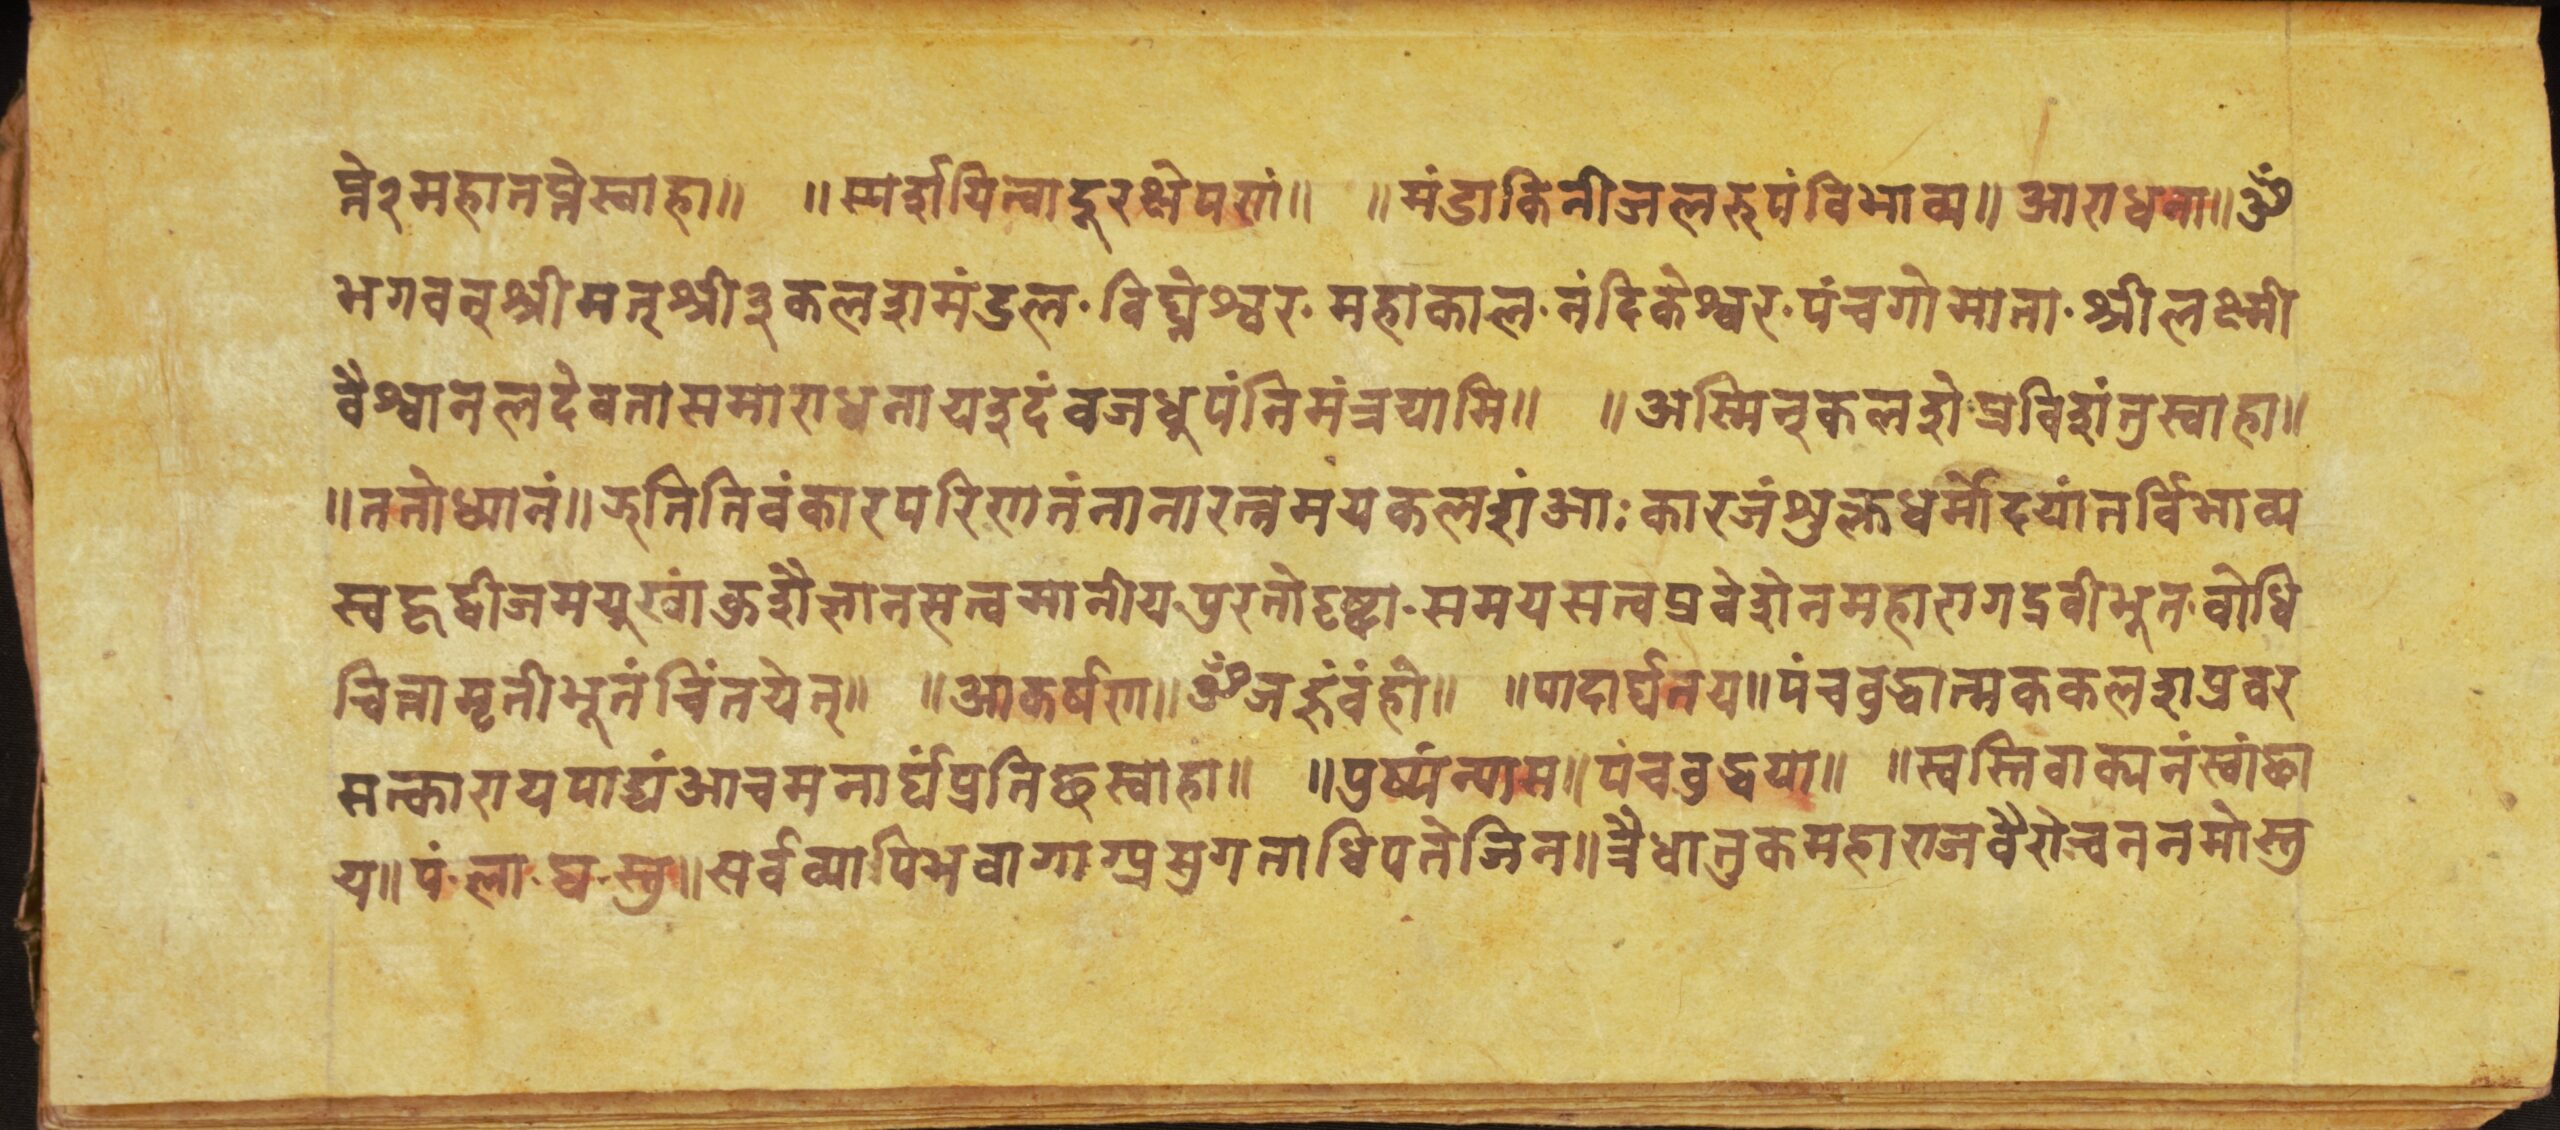 प्ने२महानप्नेस्वाहा॥ ॥स्पर्शयित्वादुरक्षेपणं॥ ॥मंडाकिनीजलरुपंविभाव्य॥ आराध्वना॥ॐ
भगवन्श्रीमत्श्री३कलशमंडल·विघ्नेश्वर·महाकाल·नंदिकेश्वर·पंचगोमाता·श्रीलक्ष्मी
वैश्वानलदेवतासमाराधनायइदंवजधुपंनिमंत्रयामि॥ ॥अस्मिन्कलशेप्रविशंतुस्वाहा॥
॥ततोध्यानं॥ऊतितिवंकारपरिणतंनानारत्नमयकलशंआःकारजंशुक्लधर्मोदयांतर्विभाव्य
स्वहृद्वीजमयुखांक्रुशैज्ञानसत्वमानीय·पुरतोदृष्ट्वा·समयसत्वप्रवेशेनमहारागद्रवीभुत·वोधि
चित्तामृतीभूतंचिंतयेत्॥ ॥आकर्षण॥ॐजहुंवंहो॥ ॥पादार्घ्यतय॥पंचवुद्धात्मककलशप्रवर
सत्कारायपाद्यंआचमनार्घ्यंप्रतिछस्वाहा॥ ॥पुर्ष्पंन्यास॥पंचवुद्धया॥ ॥स्वस्तिवाक्यनंस्वांछा
य॥पं·ला·घ·स्तु॥सर्वव्यापिभवाग्राग्य्रसुगताधिपतेजिन॥त्रैधातुकमहाराजवैरोचननमोस्तु